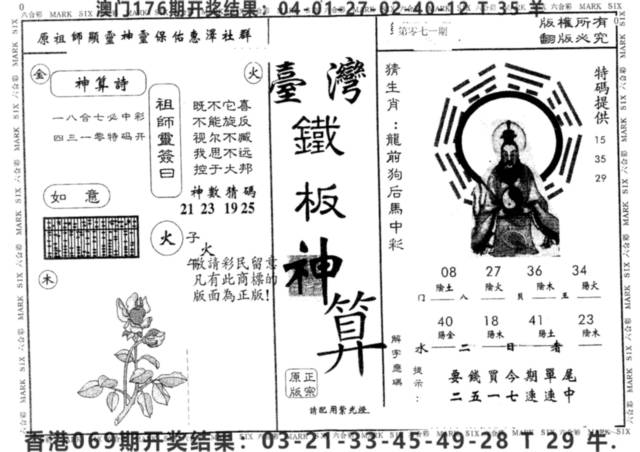 澳门176期开奖结果：04-01-27-02-40-12 T 35 羊
六合彩 MARK SIX 六合彩 MARK SIX 六合彩 MARK SIX
原祖師顯靈神靈保佑惠澤社群
第零七一期
版權所有
翻版必究
金
神算詩
火
一八合七必中彩
四三一零特码开
祖師靈簽曰
既不它喜
不能旋反
视尔不臧
我思不远
控于大邦
神數猜碼
21 23 19 25
如意
火
子
火
午
敬請彩民留意
凡有此商標的
版面為正版!
木
臺灣
鐵板神算
正宗
原版
請配用紫光燈.
猜生肖：龍前狗后馬中彩
特碼提供
15
35
29
08 27 36 34
陰土 陰火 陰木 陽火
门 八 貝 五
40 18 41 23
陽金 陽木 陽土 陰木
水 二 日 看
解字應碼
提示：
要錢買今期單尾
二五一七連連中
香港069期开奖结果：03-21-33-45-49-28 T 29 牛.